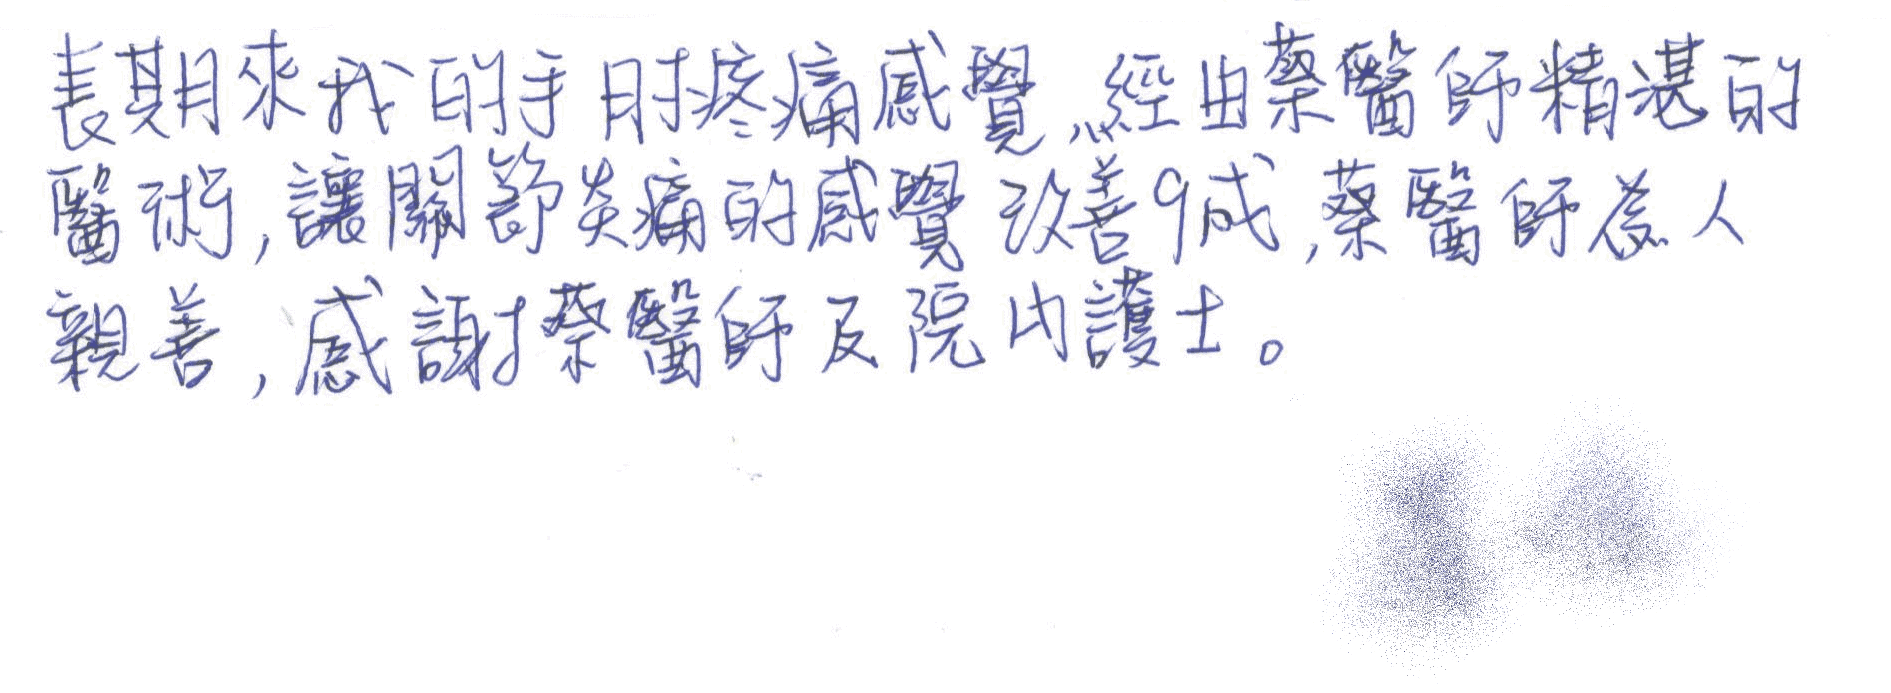 長期來我的手肘疼痛感覺,經由蔡醫師精湛的
醫術,讓關節炎痛的感覺改善9成,蔡醫師為人
親善,感謝蔡醫師及院內護士。